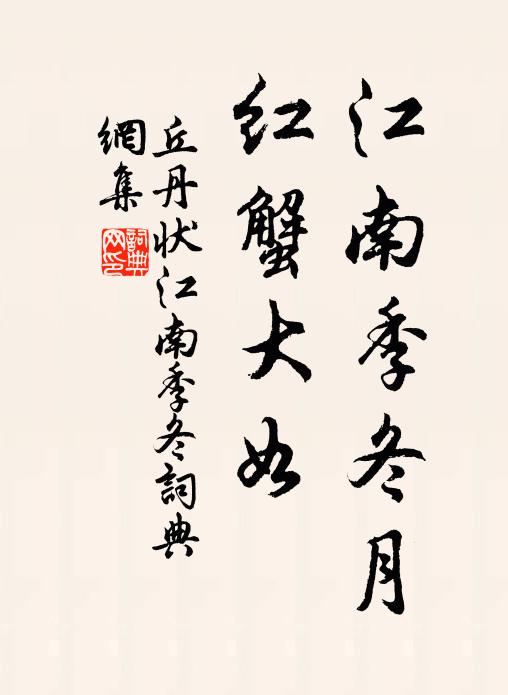 江南季冬月
紅蟹大如
丘丹状江南季冬詞典
網集
詞典
网印